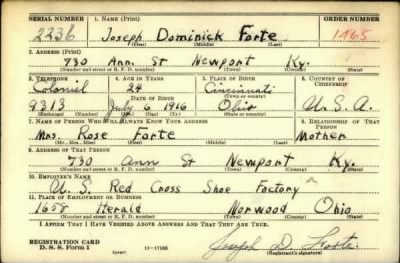 SERIAL NUMBER 1. NAME (Print) ORDER NUMBER
2236 Joseph Dominick Forte 1465
(First) (Middle) (Last)
2. ADDRESS (Print)
730 Ann St Newport Ky.
(Number and street or R. F. D. number) (Town) (County) (State)
3. TELEPHONE 4. AGE IN YEARS 5. PLACE OF BIRTH 6. COUNTRY OF CITIZENSHIP
Colonial 24 Cincinnati
(Town or county)
DATE OF BIRTH
9313 July 6 1916 Ohio U. S. A.
(Exchange) (Number) (Mo.) (Day) (Yr.) (State or country)
7. NAME OF PERSON WHO WILL ALWAYS KNOW YOUR ADDRESS 8. RELATIONSHIP OF THAT PERSON
Mrs. Rose Forte Mother
(Mr., Mrs., Miss) (First) (Middle) (Last)
9. ADDRESS OF THAT PERSON
730 Ann St Newport Ky.
(Number and street or R. F. D. number) (Town) (County) (State)
10. EMPLOYER'S NAME
U. S. Red Cross Shoe Factory
11. PLACE OF EMPLOYMENT OR BUSINESS
1658 Herald Norwood Ohio
(Number and street or R. F. D. number) (Town) (County) (State)
I AFFIRM THAT I HAVE VERIFIED ABOVE ANSWERS AND THAT THEY ARE TRUE.
REGISTRATION CARD
D. S. S. Form 1 Joseph D. Forte
(Registrant's signature)